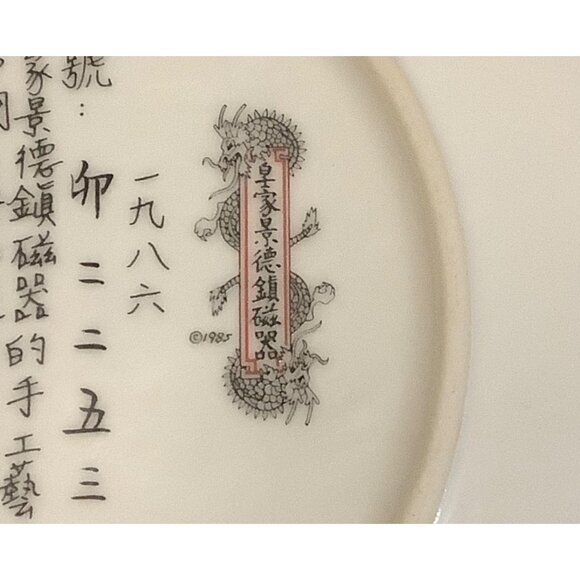 皇家景德鎮磁器
©1985
一九八六
號：卯二二五三
家景德鎮磁器的手工藝